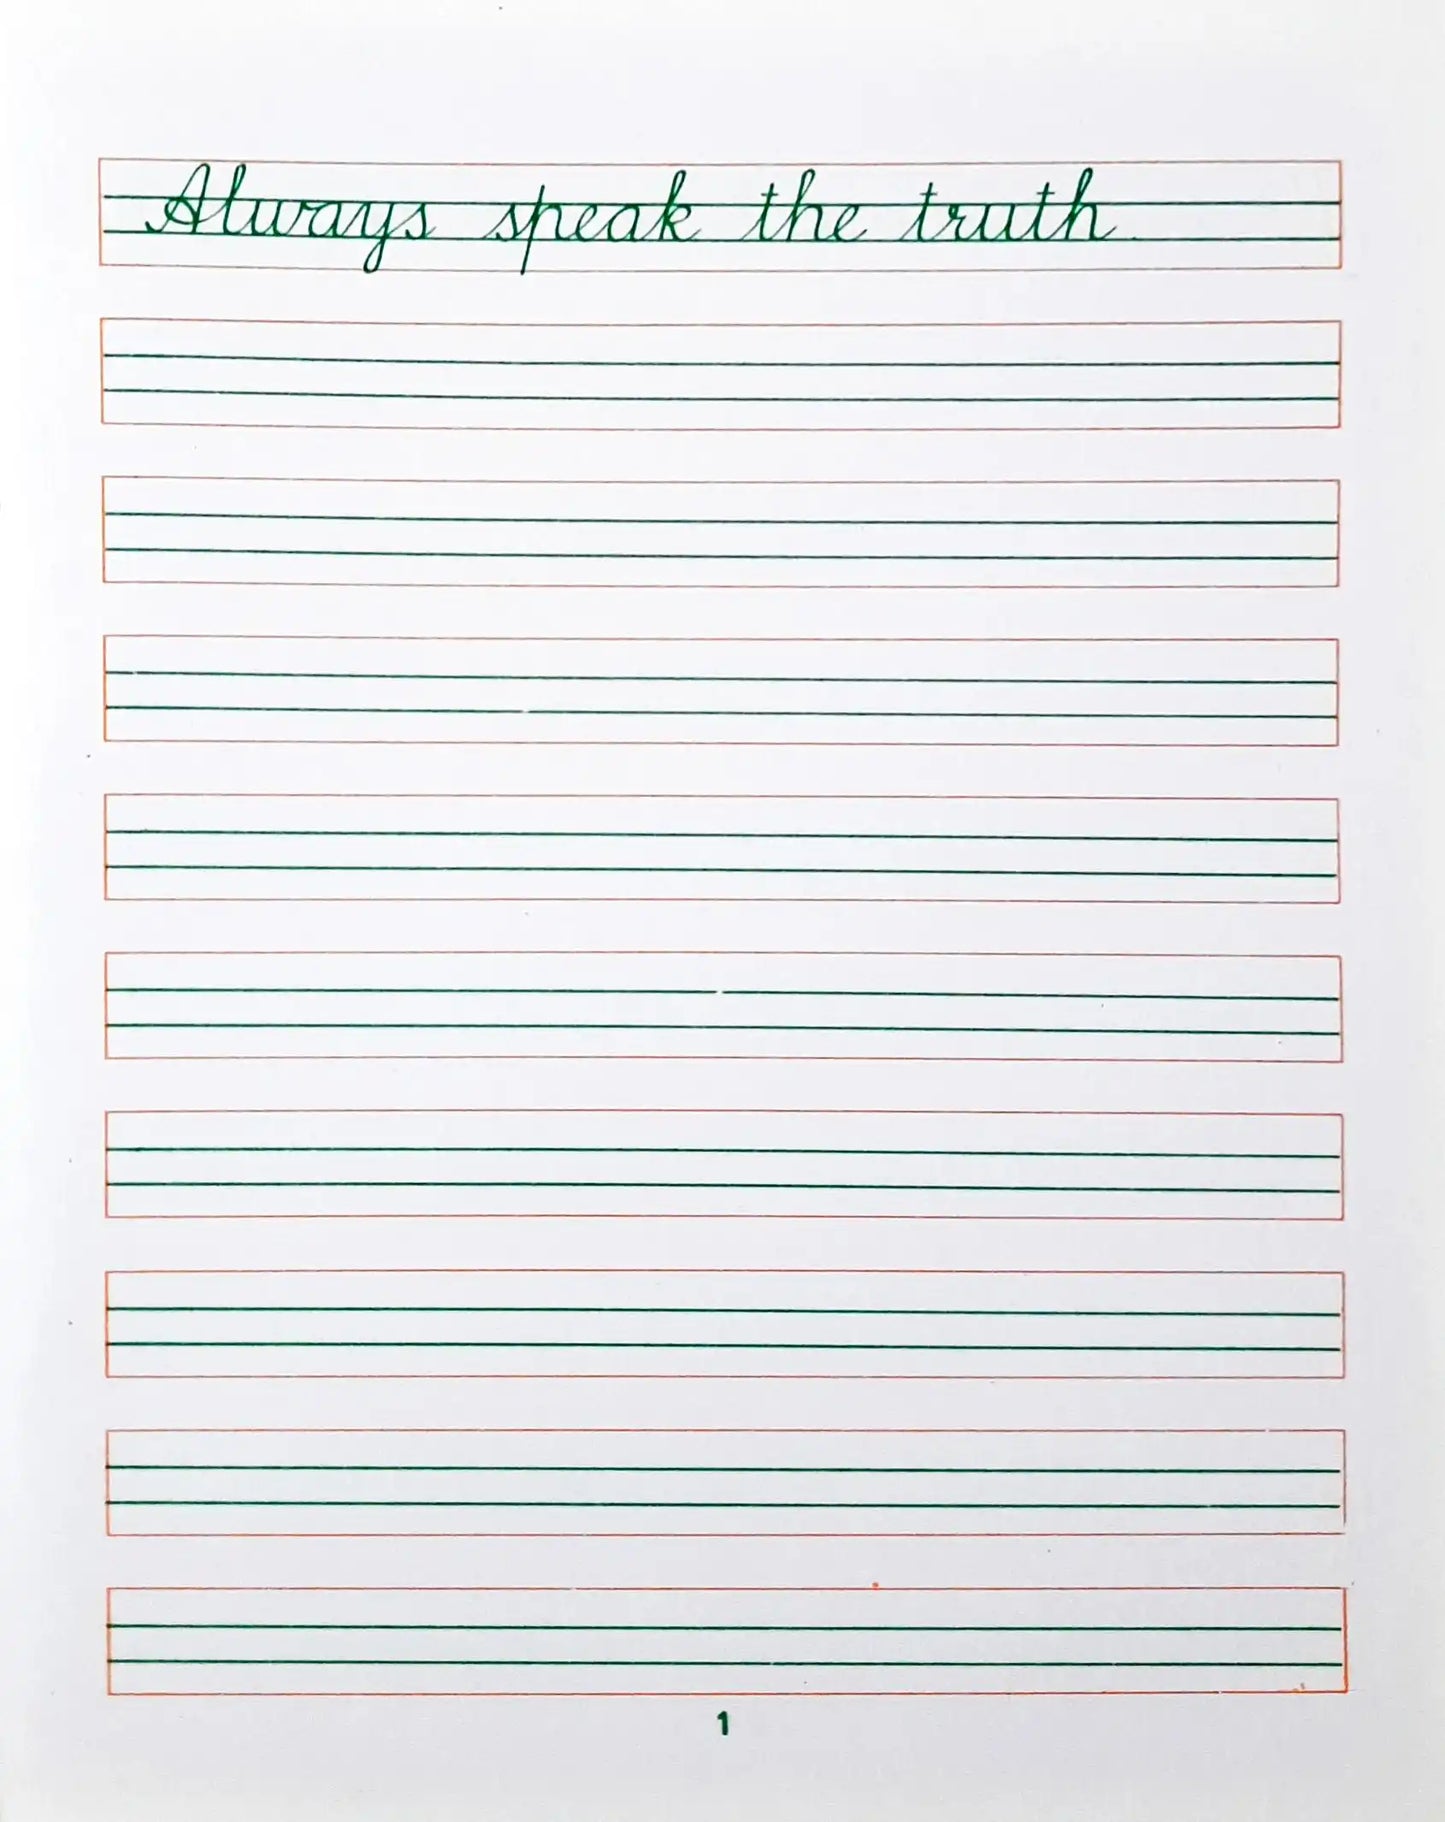 Always speak the truth.
1